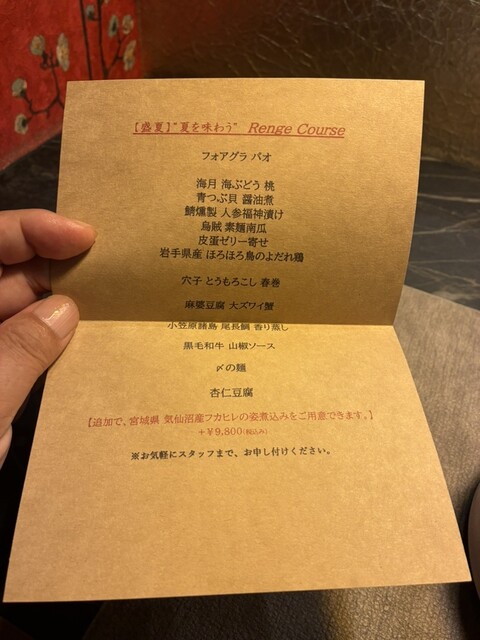 【盛夏】"夏を味わう" Renge Course
フォアグラ パオ
海月 海ぶどう 桃
青つぶ貝 醤油煮
鯖燻製 人参福神漬け
烏賊 素麺南瓜
皮蛋ゼリー寄せ
岩手県産 ほろほろ鳥のよだれ鶏
穴子 とうもろこし 春巻
麻婆豆腐 大ズワイ蟹
小笠原諸島 尾長鯛 香り蒸し
黒毛和牛 山椒ソース
〆の麺
杏仁豆腐
【追加で、宮城県 気仙沼産フカヒレの姿煮込みをご用意できます。】
+¥9,800(税込み)
※お気軽にスタッフまで、お申し付けください。